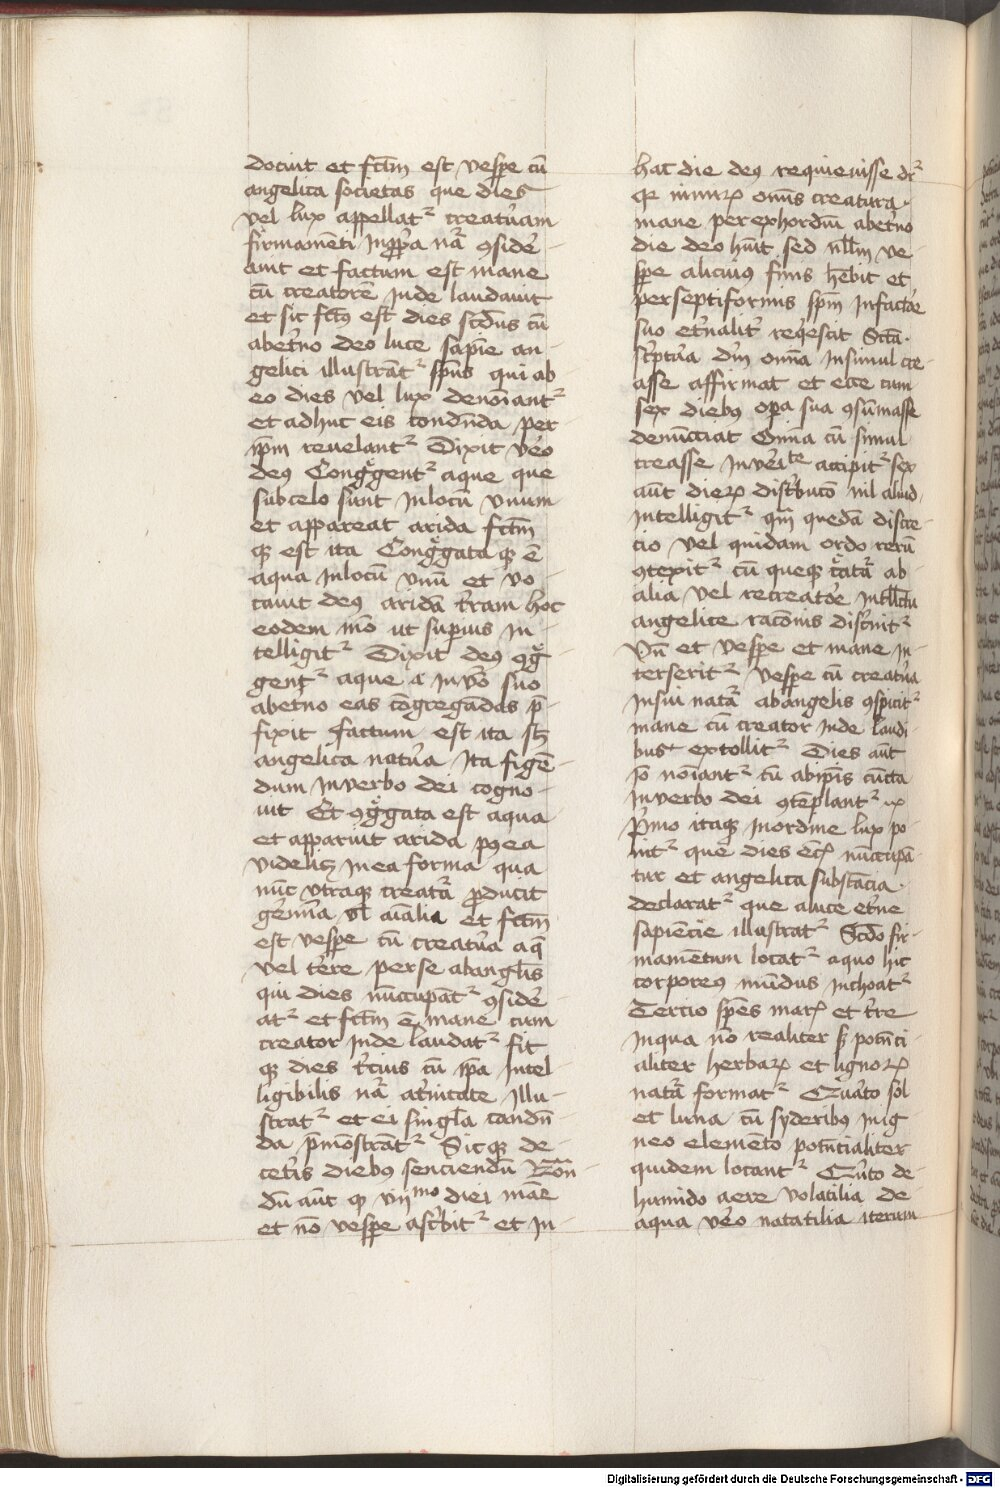 dociut et fctm̄ est vespe cū
angelica societas que dies
vel lux appellat᷑ creatuam
firmamēti inppa nā ꝯsidē-
auit et factum est mane
cū creatorē inde laudauit
et sic fctꝰ est dies scdus cū
abetno deo luce sapīe an-
gelici illustrāt᷑ spūs qui ab
eo dies vel lux denoīant᷑
et adhuc eis condenda per
ipm̄ reuelant᷑ Dixit veo
deꝰ Cong̃gent᷑ aque que
subcelo sunt inlocū vnum
et appareat arida fctm̄
qꝫ est ita Cong̃gata qꝫ ē
aqua inlocū vnū et vo-
cauit deꝰ aridā tram hoc
eodem mō ut supius in-
telligit᷑ Dixit deꝰ ꝯg̃-
gent᷑ aque i inv̄o suo
abetno eas cōgregādas p̄-
fixit factum est ita sꝫ
angelica natua ita figēn-
dum inverbo dei cogno-
uit Et ꝯg̃gata est aqua
et apparuit arida pꝰea
videliꝫ inea forma qua
nūc vtraqꝫ creatā pducit
gemīa vl aīalia et fctm̄
est vespe cū creatua aq̄
vel tere perse abangl̄is
qui dies nūcupāt᷑ ꝯsidē-
at᷑ et fctm̄ ē mane cum
creator inde laudat᷑ fit
qꝫ dies tcius cū ipa intel-
ligibilis nā atnitate illu-
strat᷑ et ei singl̄a condēn-
da p̄mōstrāt᷑ Sicqꝫ de
cetis diebꝰ senciendū Rōn-
dū aūt qꝫ vijᵐᵒ diei mane
et nō vespe ascbit᷑ et in
hac die deꝰ requieuisse dr᷑
omīs creatura
mane perexhordiū abetno
die deo hūit sed nll̄m ve-
spe alicuiꝰ finis hēbit et
perseptiformis spm̄ infactoe
suo etnalit reqescit Scta
scptua dm̄ omīa insimul cre-
asse affirmat et ecce cum
sex diebꝰ opa sua ꝯsūmasse
denūcciat Omīa cū simul
creasse inveiᵗᵉ accipit᷑ sex
aūt dieꝝ distbuco nil aliud
intelligit᷑ qm̄ quedā discre-
cio vel quidam ordo rerū
ꝯtexit᷑ cū queqꝫ catā ab
alia vel recreatoe intllctu
angelice racōnis discnit᷑
Vn̄ et vespe et mane in-
terserit᷑ vespe cū creatua
insui natā abangelis ꝯspicit᷑
mane cū creator inde laudi-
bus extollit᷑ Dies aūt
iō noīant᷑ cū abip̄is cuncta
inverbo dei ꝯtēplant᷑
Pmo itaqꝫ inordine lux po-
nit᷑ que dies ecꝫ nūccupā-
tur et angelica substācia
declarat᷑ que aluce etne
sapiencie illustrat᷑ Scdo fir-
mamētum locat᷑ aquo hic
corporeꝰ mūdus inchoat᷑
Tercio spes marꝫ et tre
inqua nō realiter sꝫ potnci-
aliter herbaꝝ et lignoꝝ
natā format᷑ Quato sol
et luna cū syderibꝰ inig-
neo elemēto potncialiter
quidem locant᷑ Qnto de
humido aere volatilia de
aqua veo natatilia iterum
Digitalisierung gefördert durch die Deutsche Forschungsgemeinschaft - DFG